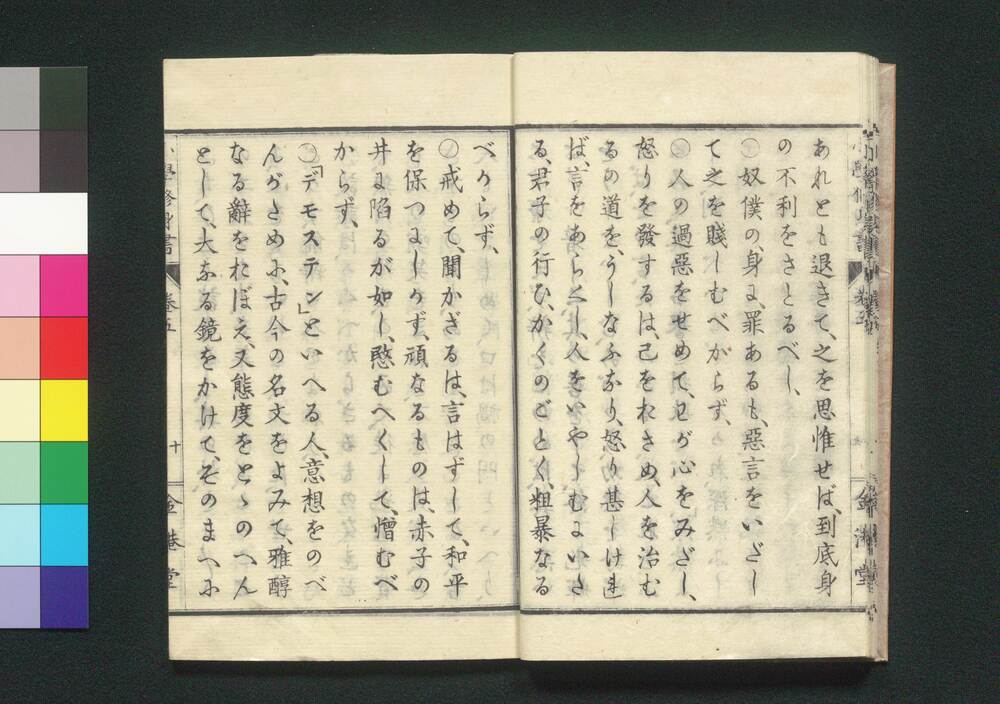 あれとも退きて、之を思惟せば、到底身
の不利をさとるべし、
〇奴僕の、身に、罪あるも、惡言をいだし
て之を賤しむべからず、
〇人の過惡をせめて、わが心をみだし、
怒りを發するは、己をおさめ、人を治む
るの道を、うしなふなり、怒り甚しけれ
ば、言をあらくし、人をいやしむにいさ
る、君子の行ひ、かくのごとく、粗暴なる
べからず、
〇戒めて、聞かざるは、言はずして、和平
を保つにしかず、頑なるものは、赤子の
井に陷るが如し、愍むへくして、憎むべ
からず、
〇「デモステン」といへる人、意想をのべ
んがために、古今の名文をよみて、雅醇
なる辭をおぼえ、又態度をとゝのへん
として、大なる鏡をかけて、そのまへに
小學修身書
卷五
十
金港堂